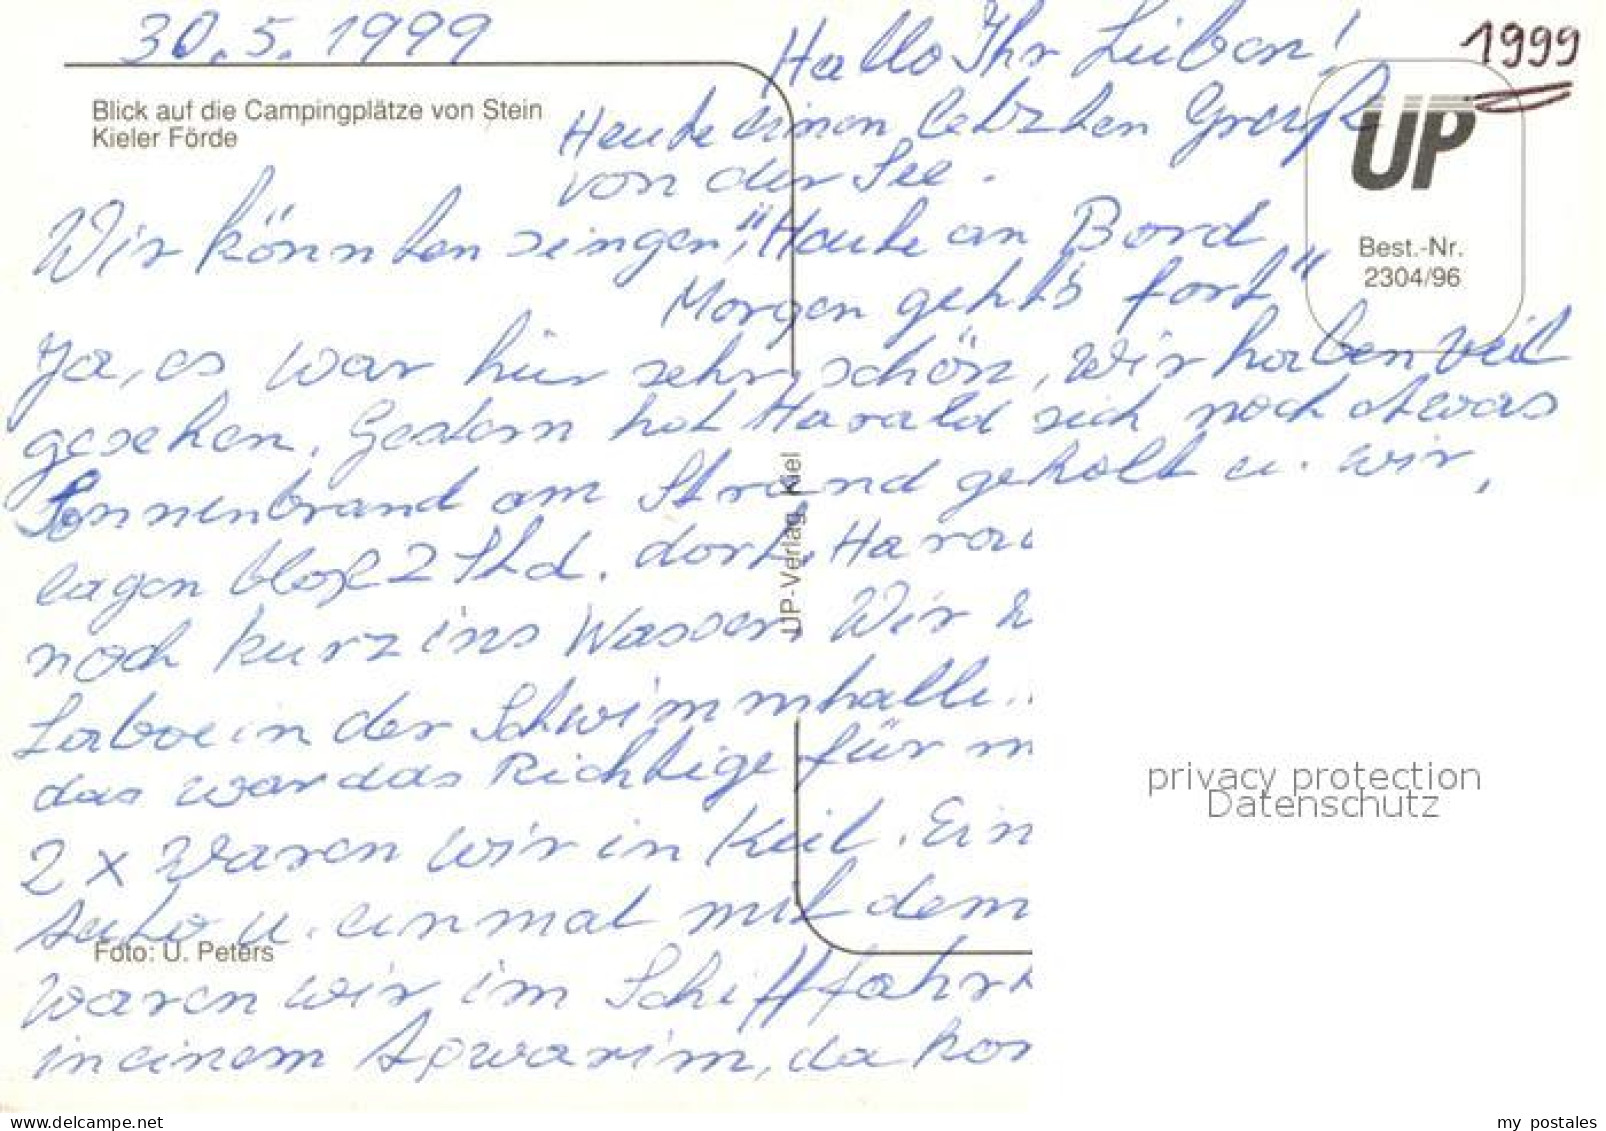 30.5.1999
1999
Hallo Ihr Lieben!
Blick auf die Campingplätze von Stein
Kieler Förde
UP
Best.-Nr.
2304/96
Heute einen letzten Gruß
von der See.
Wir könnten singen, "Heute an Bord
Morgen gehts fort"
Ja, es war hier sehr schön, Wir haben viel
gesehen. Gestern hat Harald sich noch etwas
Sonnenbrand am Strand geholt u. wir,
lagen bloß 2 Std. dort,
noch kurz ins Wasser, Wir
Laboe in der Schwimmhalle..
das war das Richtige für
2 x Waren wir in Kiel.
Auto u. einmal mit dem
waren wir im
in einem Aqwarim, da
UP-Verlag, Kiel
Foto: U. Peters
privacy protection
Datenschutz
delcampe.net
my_postales